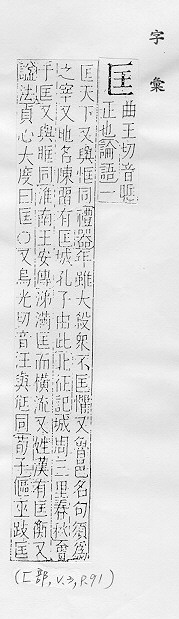 字彙
匡 曲王切音眶
正也論語一
匡天下又與恇同禮器年雖大殺衆不匡懼又魯邑名句須爲
之宰又地名陳留有匡城孔子由此北征記城周三里春秋會
于匡又與眶同淮南王安傳涕滿匡而橫流又姓漢有匡衡又
諡法貞心大度曰匡○又烏光切音汪與尩同荀子傴巫跛匡
(匚部, v.3, p.91)